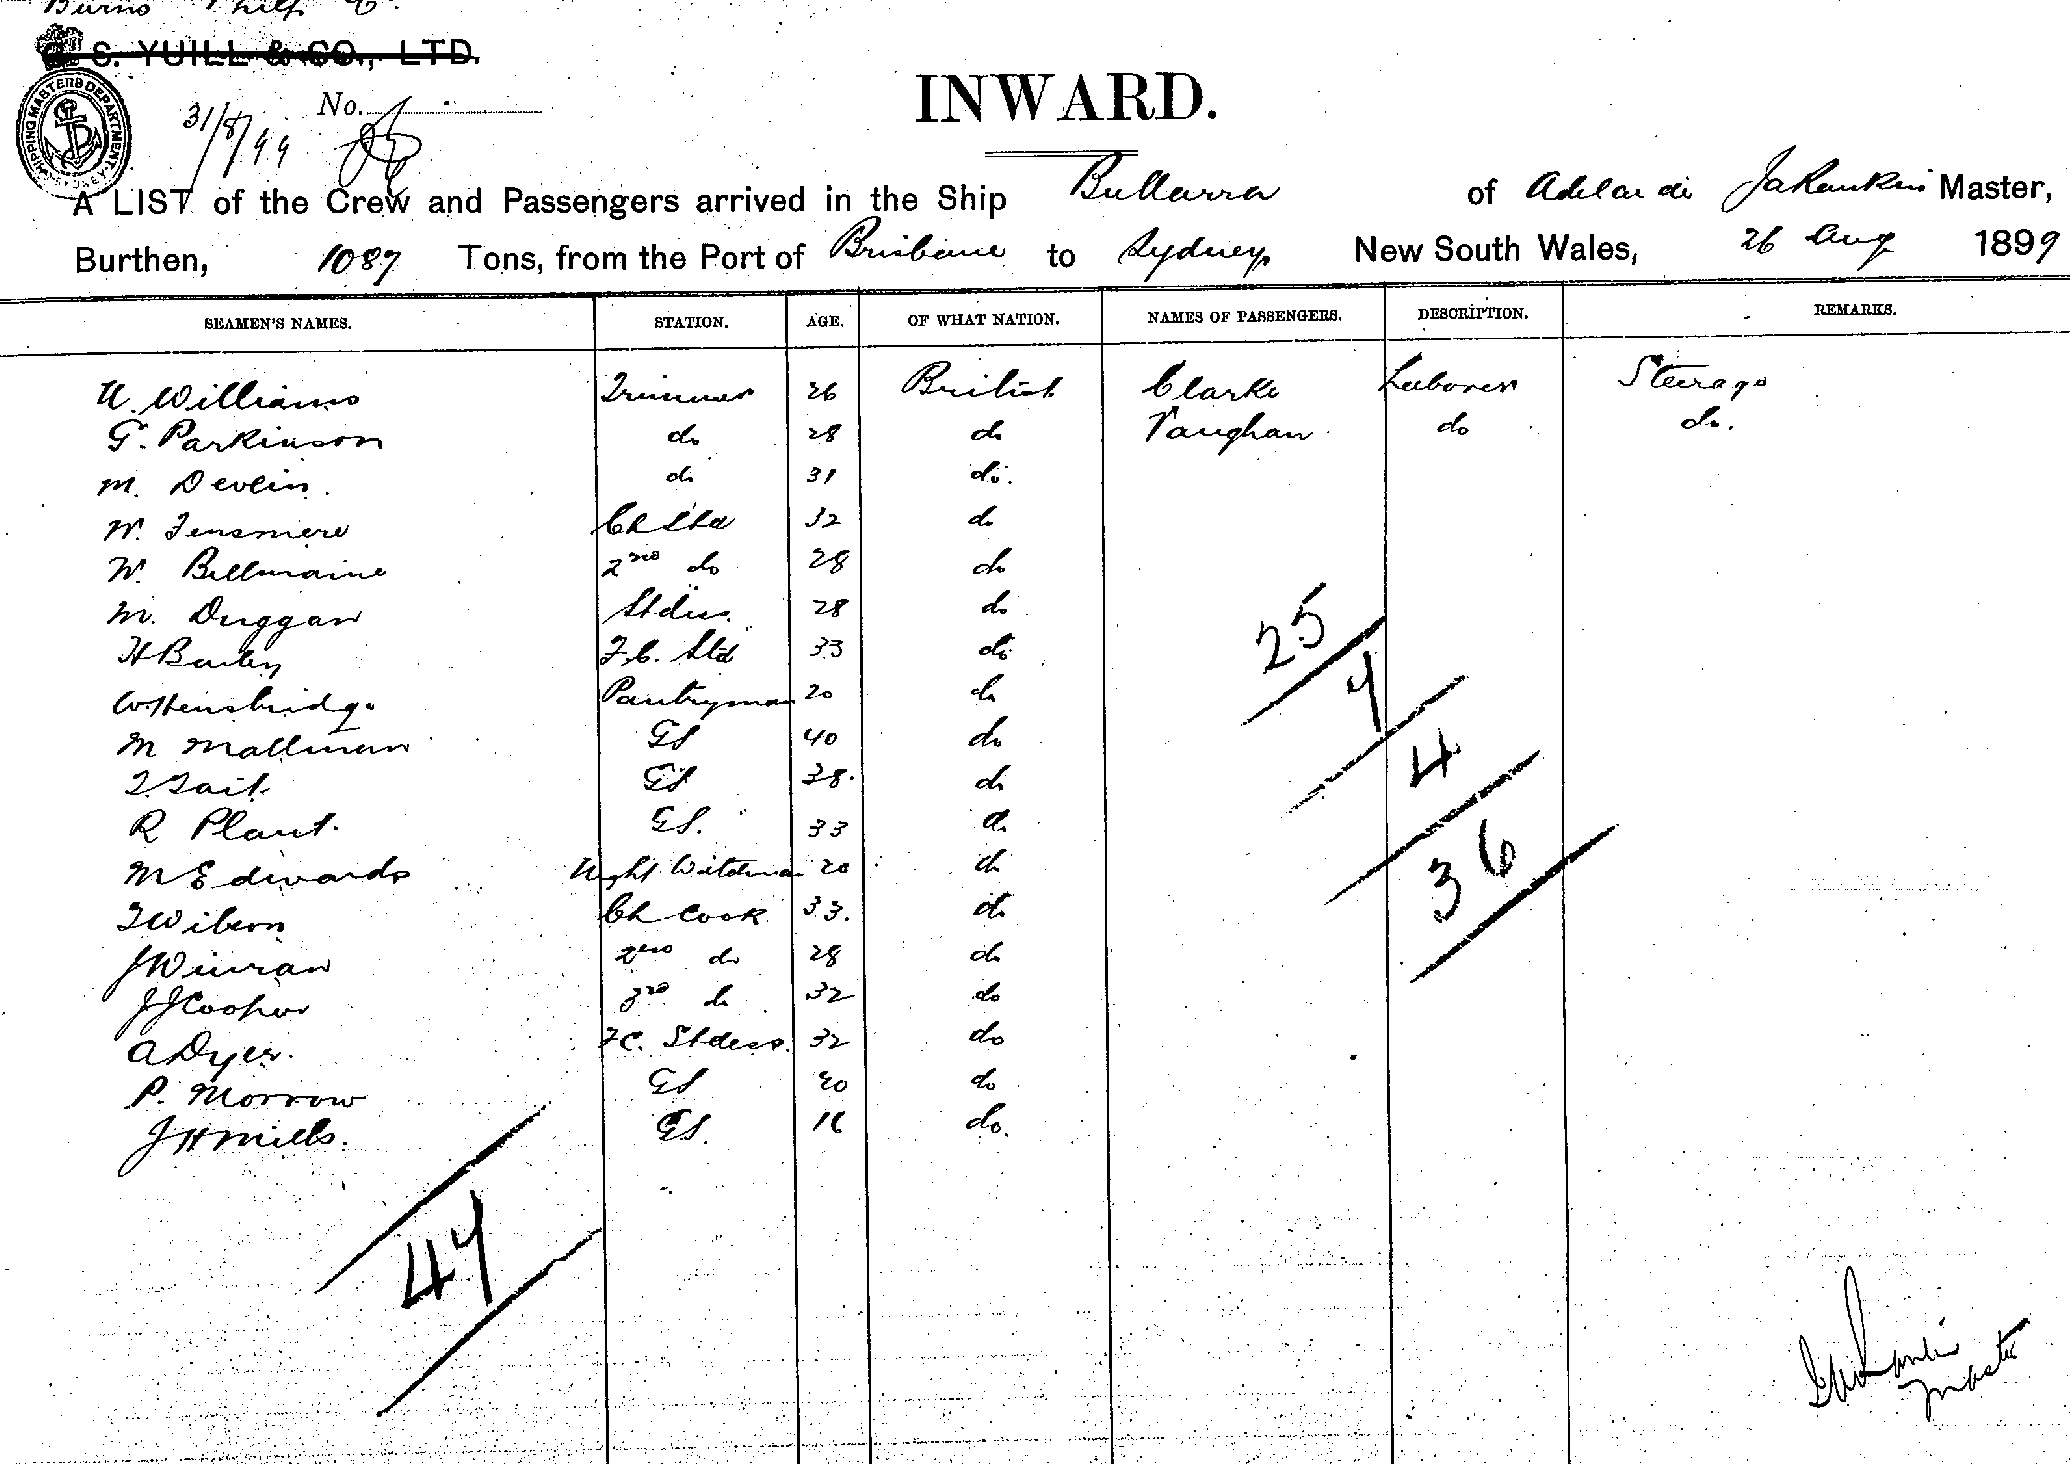 Burns Philp Co.
S. YUILL & CO., LTD.
SHIPPING MASTERS DEPARTMENT
31/8/99 No.
INWARD.
A LIST of the Crew and Passengers arrived in the Ship Bullarra of Adelaide Master,
Burthen, 1087 Tons, from the Port of Brisbane to Sydney New South Wales, 26 Aug 1899
SEAMEN'S NAMES. STATION. AGE. OF WHAT NATION. NAMES OF PASSENGERS. DESCRIPTION. REMARKS.
W. Williams Trimmer 26 British Clarke Laborer Steerage
G. Parkinson do 28 do Vaughan do do.
M. Devlin. do 31 do.
W. Ch Std 32 do
W. 2nd do 28 do
M. Duggan Stdss. 28 do
H Bailey F.C. Std 33 do
Pantryman 20 do
M GS 40 do
T. Tait. GS 38. do
R Plant. GS. 33 do
M Edwards Night Watchman 20 do
T Wilson Ch Cook 33. do
J 2nd do 28 do
J J Cooper 3rd do 32 do
A Dyer. F.C. Stdess. 32 do
P. Morrow GS do
J H Mills. GS. do.
25
7
4
36
47
Master